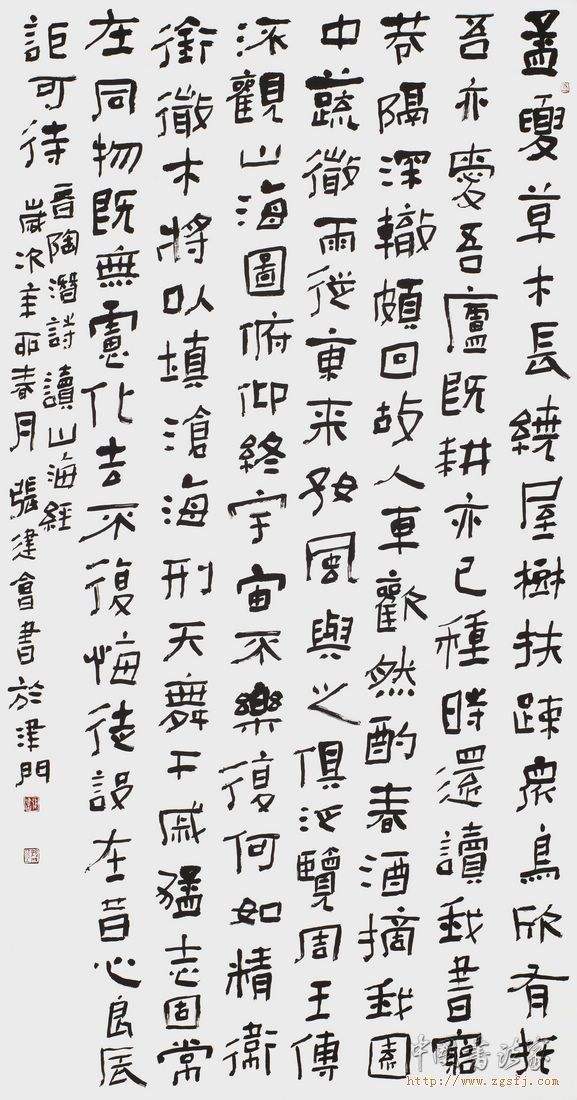 孟夏草木長繞屋樹扶疎衆鳥欣有托
吾亦愛吾廬既耕亦已種時還讀我書窮
巷隔深轍頗回故人車歡然酌春酒摘我園
中蔬微雨從東来好風與之俱汎覽周王傳
流觀山海圖俯仰終宇宙不樂復何如精衛
銜微木將以填滄海刑天舞干戚猛志固常
在同物既無慮化去不復悔徒設在昔心良辰
詎可待
晉陶潛詩讀山海經
歲次辛卯春月張建會書於津門
中国书法家
http://www.zgsfj.com